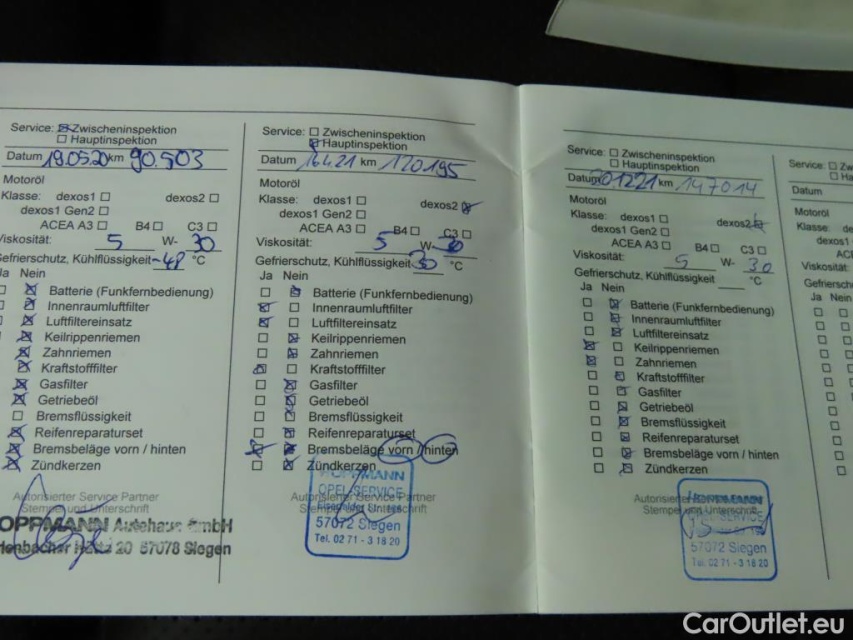 Service: Zwischeninspektion
Hauptinspektion
Datum 19.05.20 km 90.503
Motoröl
Klasse: dexos1 dexos2
dexos1 Gen2
ACEA A3 B4 C3
Viskosität: 5 W- 30
Gefrierschutz, Kühlflüssigkeit -48 °C
Ja Nein
Batterie (Funkfernbedienung)
Innenraumluftfilter
Luftfiltereinsatz
Keilrippenriemen
Zahnriemen
Kraftstofffilter
Gasfilter
Getriebeöl
Bremsflüssigkeit
Reifenreparaturset
Bremsbeläge vorn / hinten
Zündkerzen
Autorisierter Service Partner
Stempel und Unterschrift
HOPPMANN Autohaus GmbH
20 57078 Siegen
Service: Zwischeninspektion
Hauptinspektion
Datum 16.4.21 km 120195
Motoröl
Klasse: dexos1 dexos2
dexos1 Gen2
ACEA A3 B4 C3
Viskosität: 5 W- 30
Gefrierschutz, Kühlflüssigkeit 30 °C
Ja Nein
Batterie (Funkfernbedienung)
Innenraumluftfilter
Luftfiltereinsatz
Keilrippenriemen
Zahnriemen
Kraftstofffilter
Gasfilter
Getriebeöl
Bremsflüssigkeit
Reifenreparaturset
Bremsbeläge vorn / hinten
Zündkerzen
Autorisierter Service Partner
Stempel und Unterschrift
HOPPMANN
OPEL SERVICE
57072 Siegen
Tel. 02 71 - 3 18 20
Service: Zwischeninspektion
Hauptinspektion
Datum 201221 km 147014
Motoröl
Klasse: dexos1 dexos2
dexos1 Gen2
ACEA A3 B4 C3
Viskosität: 5 W- 30
Gefrierschutz, Kühlflüssigkeit °C
Ja Nein
Batterie (Funkfernbedienung)
Innenraumluftfilter
Luftfiltereinsatz
Keilrippenriemen
Zahnriemen
Kraftstofffilter
Gasfilter
Getriebeöl
Bremsflüssigkeit
Reifenreparaturset
Bremsbeläge vorn / hinten
Zündkerzen
Autorisierter
Stempel und Unterschrift
HOPPMANN
SERVICE
57072 Siegen
Tel. 02 71 - 3 18 20
Service: Zw
Ha
Datum
Motoröl
Klasse: de
dexos1
ACE
Viskosität:
Gefriersch
Ja Nein
CarOutlet.eu